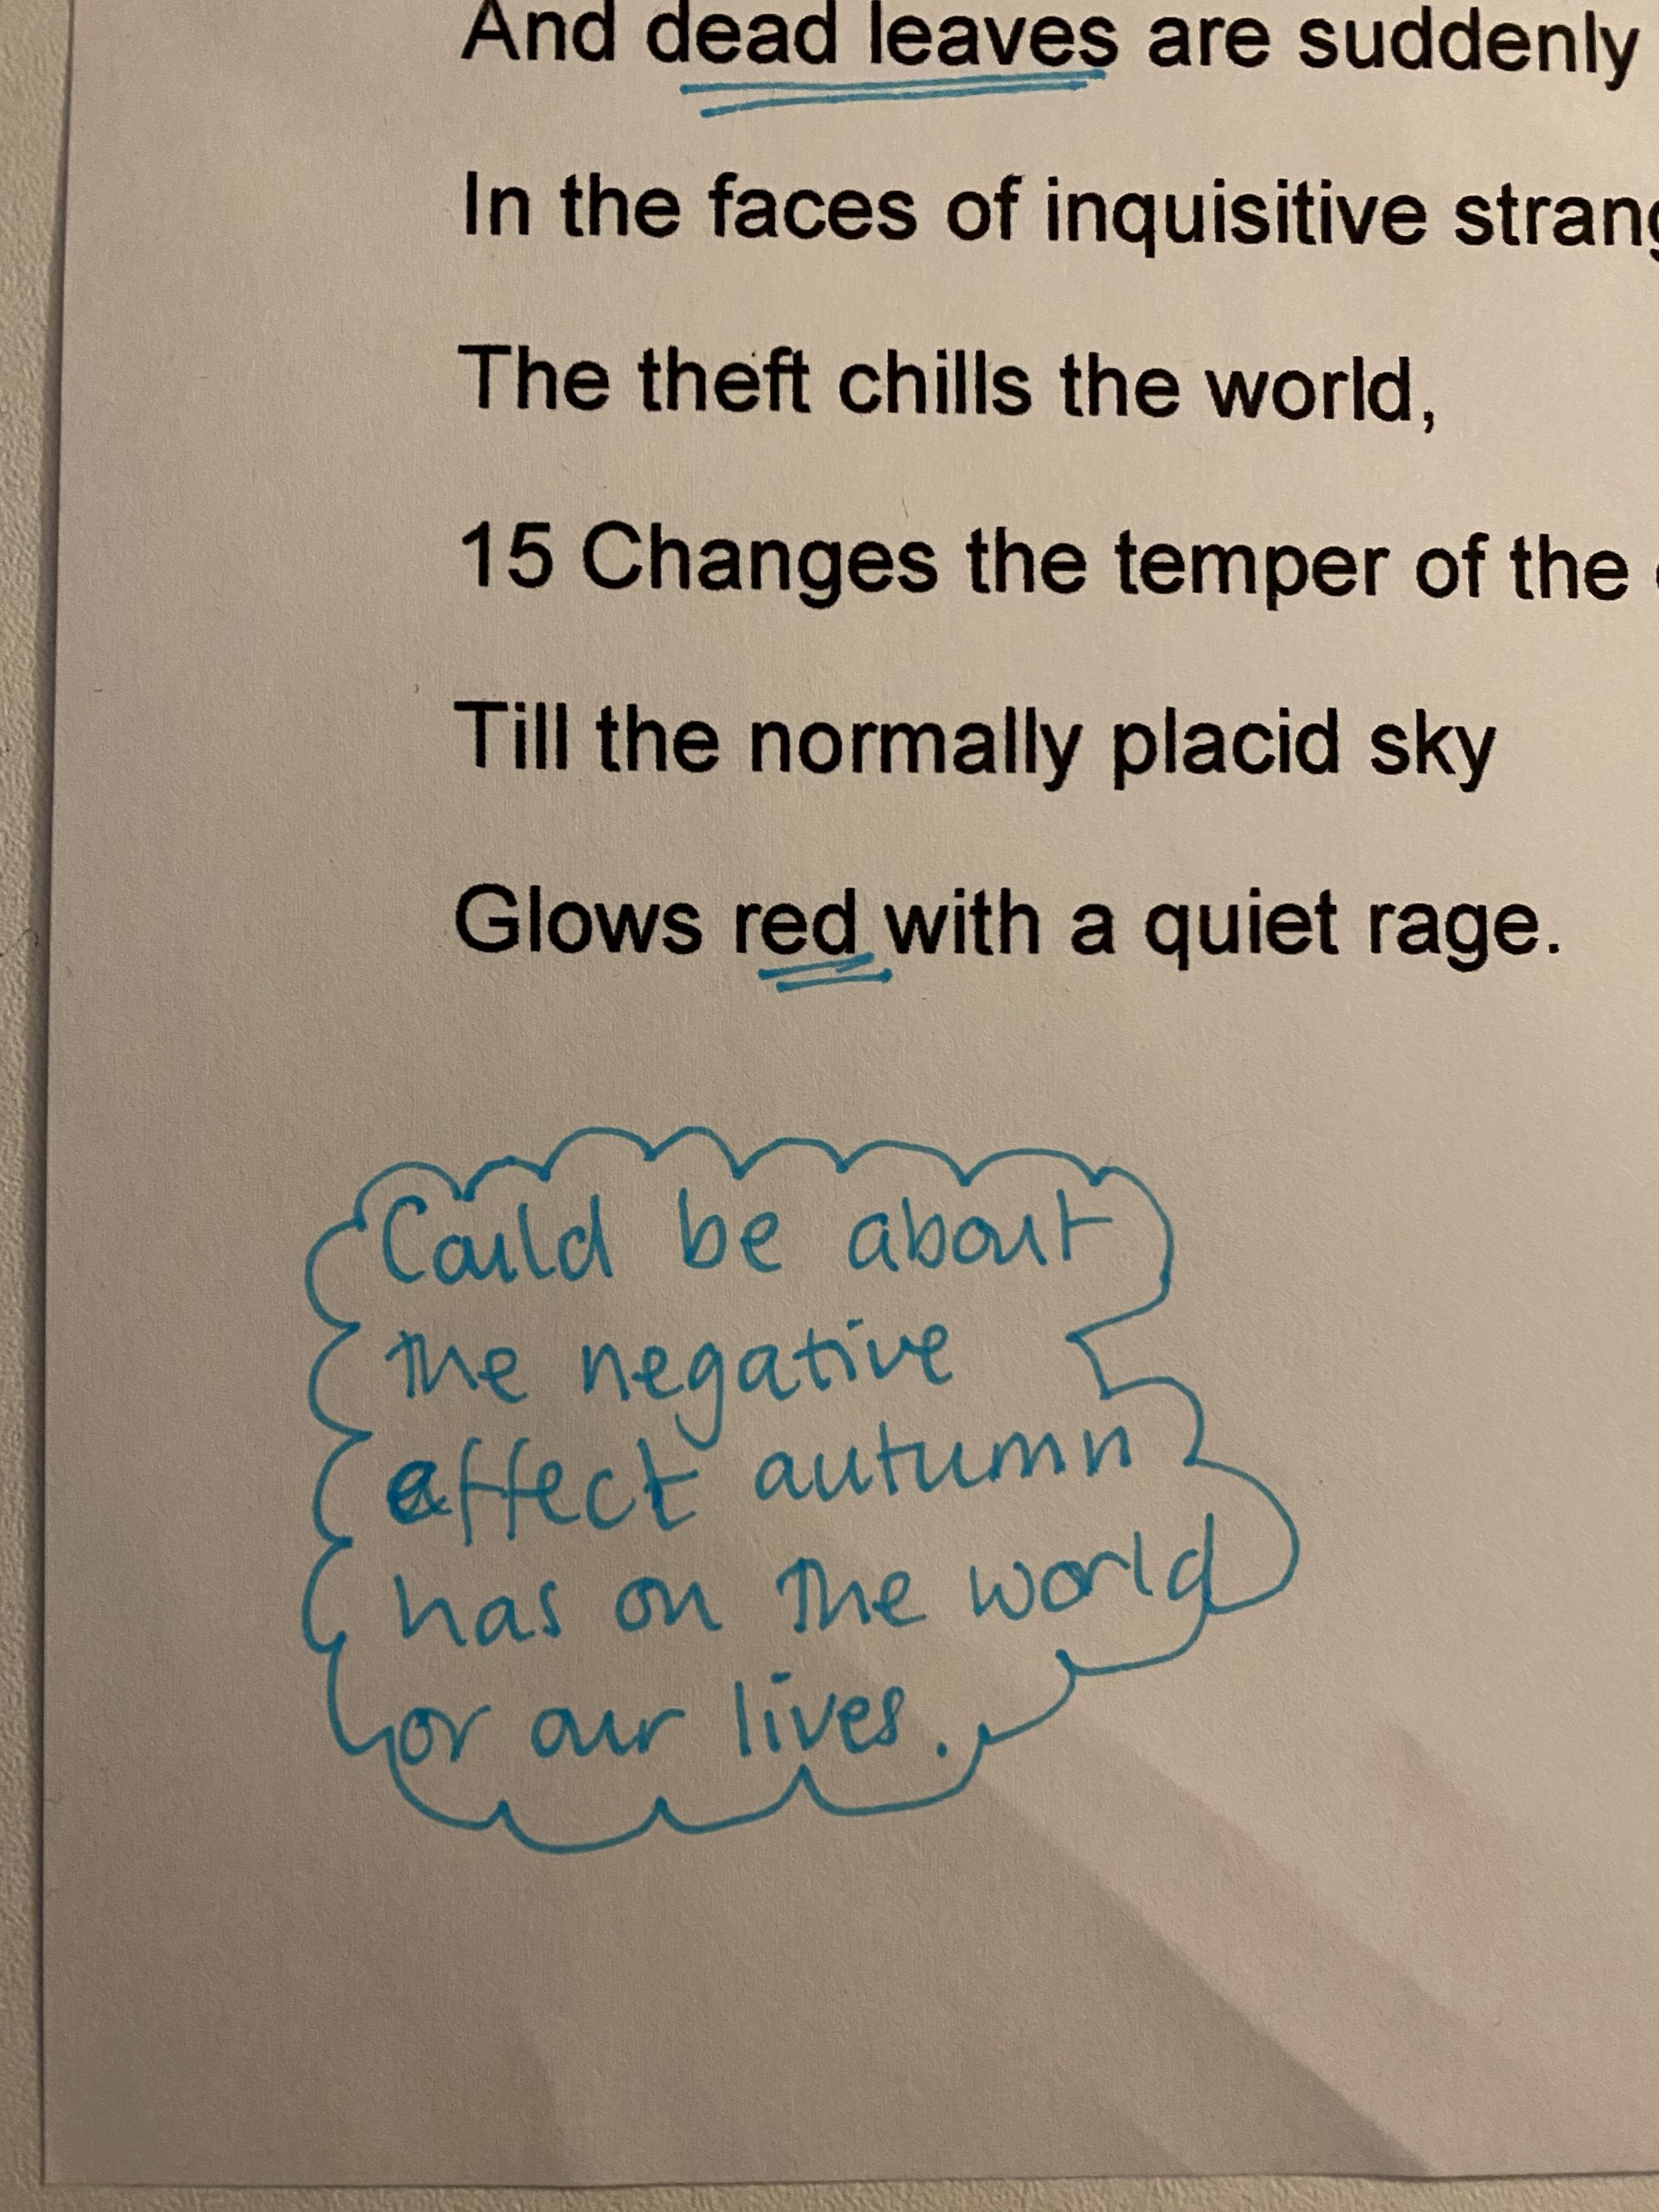 And dead leaves are suddenly
In the faces of inquisitive strang
The theft chills the world,
15 Changes the temper of the
Till the normally placid sky
Glows red with a quiet rage.
Could be about
the negative
effect autumn
has on the world
or our lives.